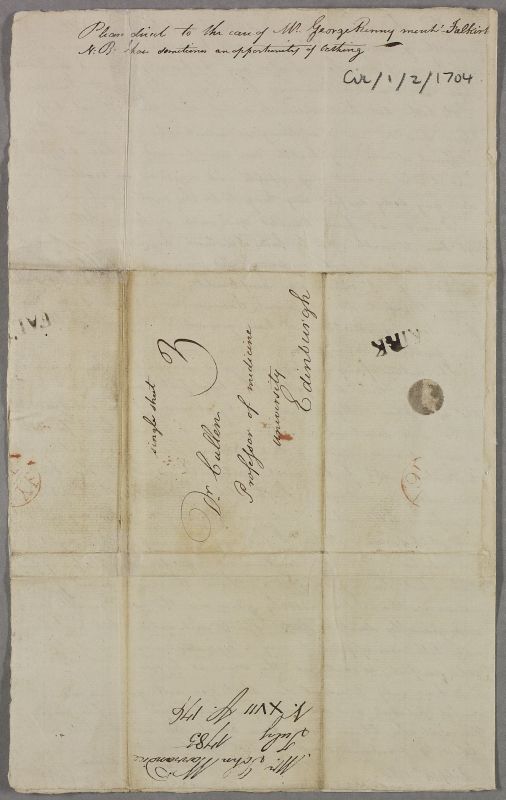 Please direct to the care of Mr. George Renny mercht. Falkirk
N. B. I have sometimes an opportunity of bathing
Cul/1/2/1704
single sheet
3
Dr. Cullen
Professor of medicine
university
Edinburgh
FAL
KIRK
Mr. John
July 1785
V. XVII P. 176